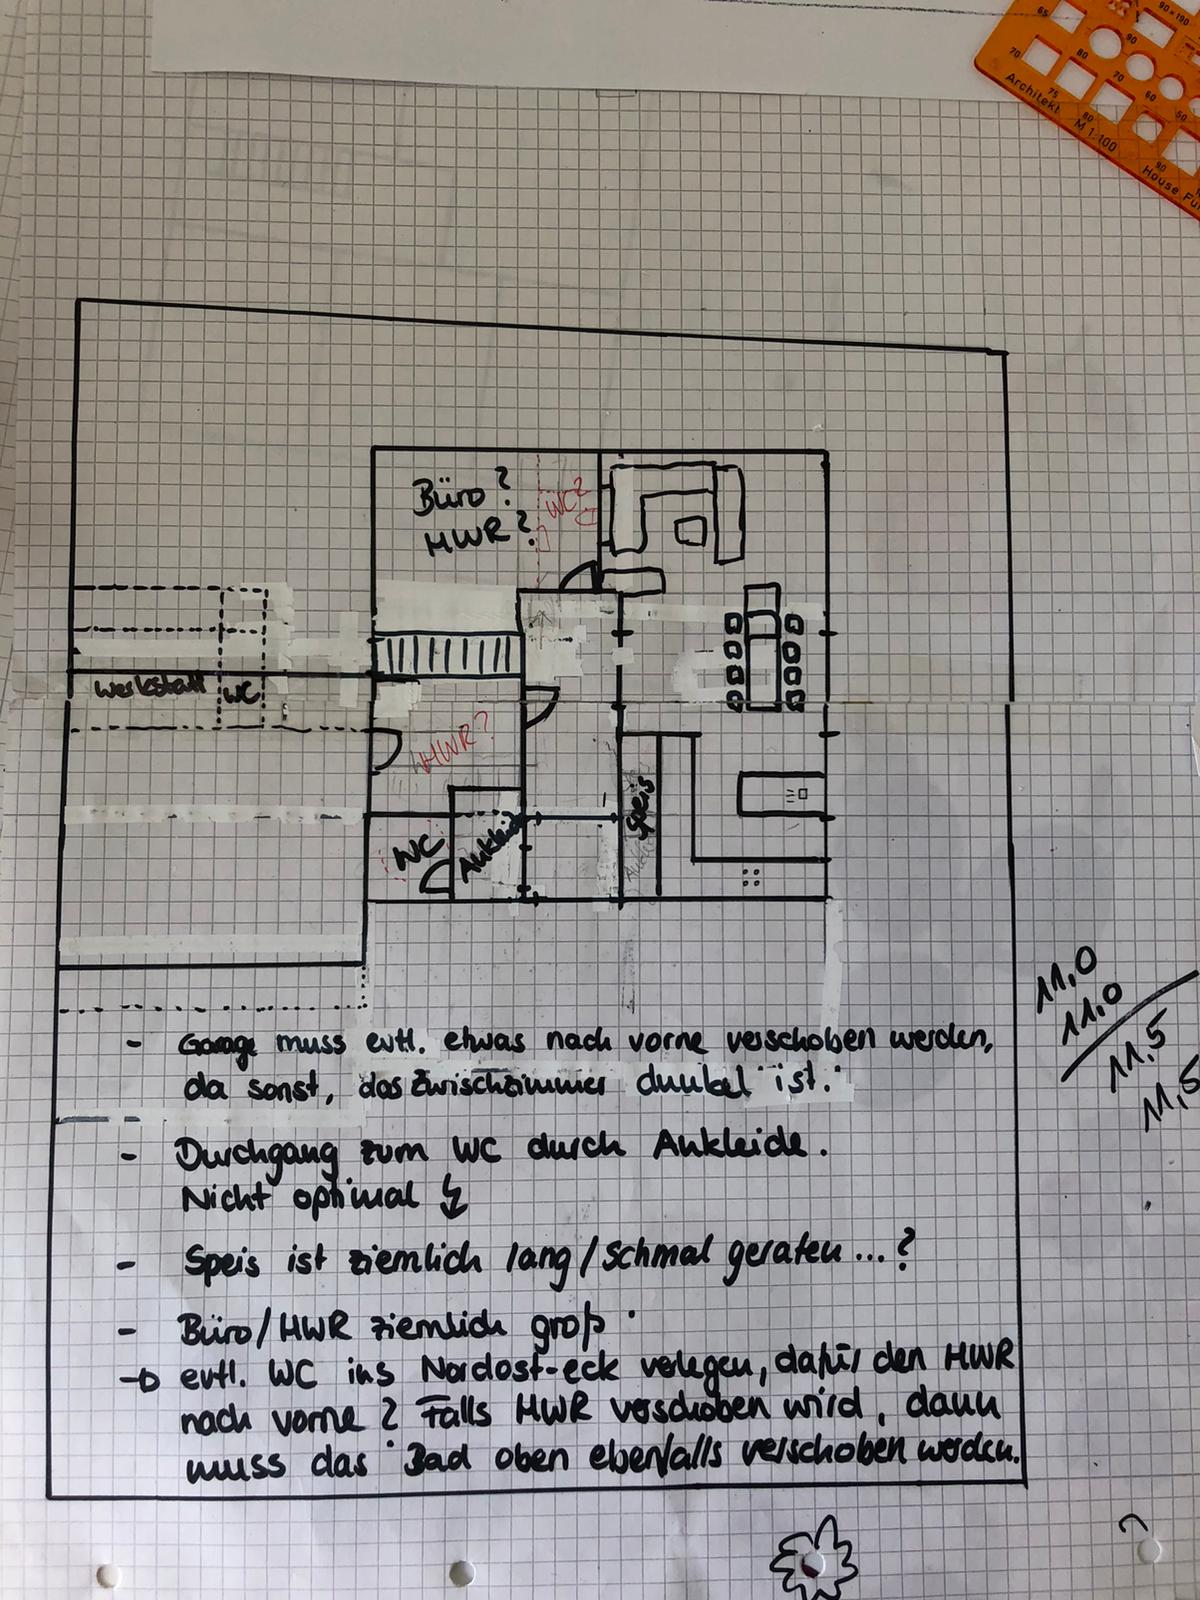 65
90×190
90
70
80
70
60
50
75
80
90
Architekt M 1:100
House Fur
Büro?
HWR?
WC?
Werkstatt
WC
HWR?
WC
Ankleide
Speis
11,0
11,0
11,5
11,5
- Garage muss evtl. etwas nach vorne verschoben werden,
da sonst, das Zwischzimmer dunkel ist.
- Durchgang zum WC durch Ankleide.
Nicht optimal
- Speis ist ziemlich lang/schmal geraten...?
- Büro/HWR ziemlich groß
→ evtl. WC ins Nordost-eck verlegen, dafür den HWR
nach vorne? Falls HWR verschoben wird, dann
muss das Bad oben ebenfalls verschoben werden.